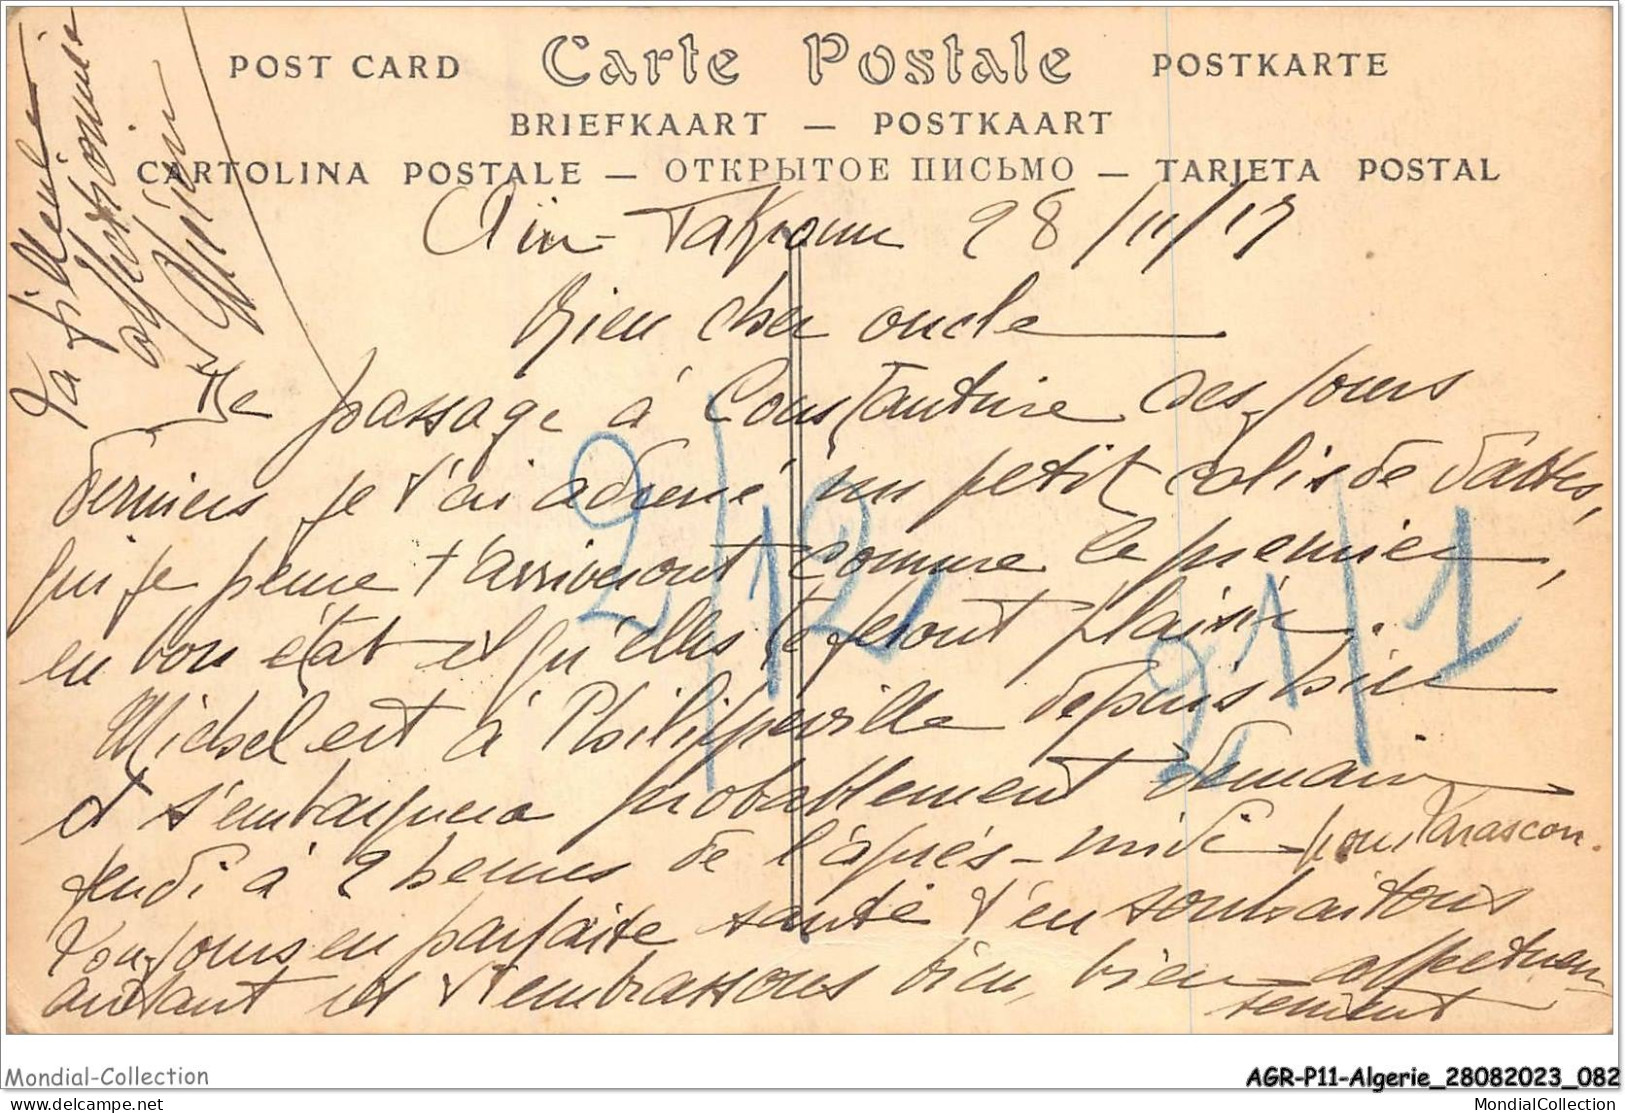 POST CARD Carte Postale POSTKARTE
BRIEFKAART — POSTKAART
CARTOLINA POSTALE — ОТКРЫТОЕ ПИСЬМО — TARJETA POSTAL
Aïn-Takrouna 28/11/17
Bien cher oncle
De passage à Constantine ces jours
derniers je t'ai adressé un petit colis de dattes,
qui je pense t'arriveront comme le premier,
en bon état et qu'elles te feront plaisir.
Michel est à Philippeville depuis hier
et s'embarquera probablement demain
jeudi à 2 heures de l'après-midi pour Tarascon.
Toujours en parfaite santé t'en souhaitons
autant et t'embrassons bien, bien affectueu-
sement
Ta filleule
affectionnée
2/12
21/1
Mondial-Collection
AGR-P11-Algerie_28082023_082
delcampe.net
MondialCollection